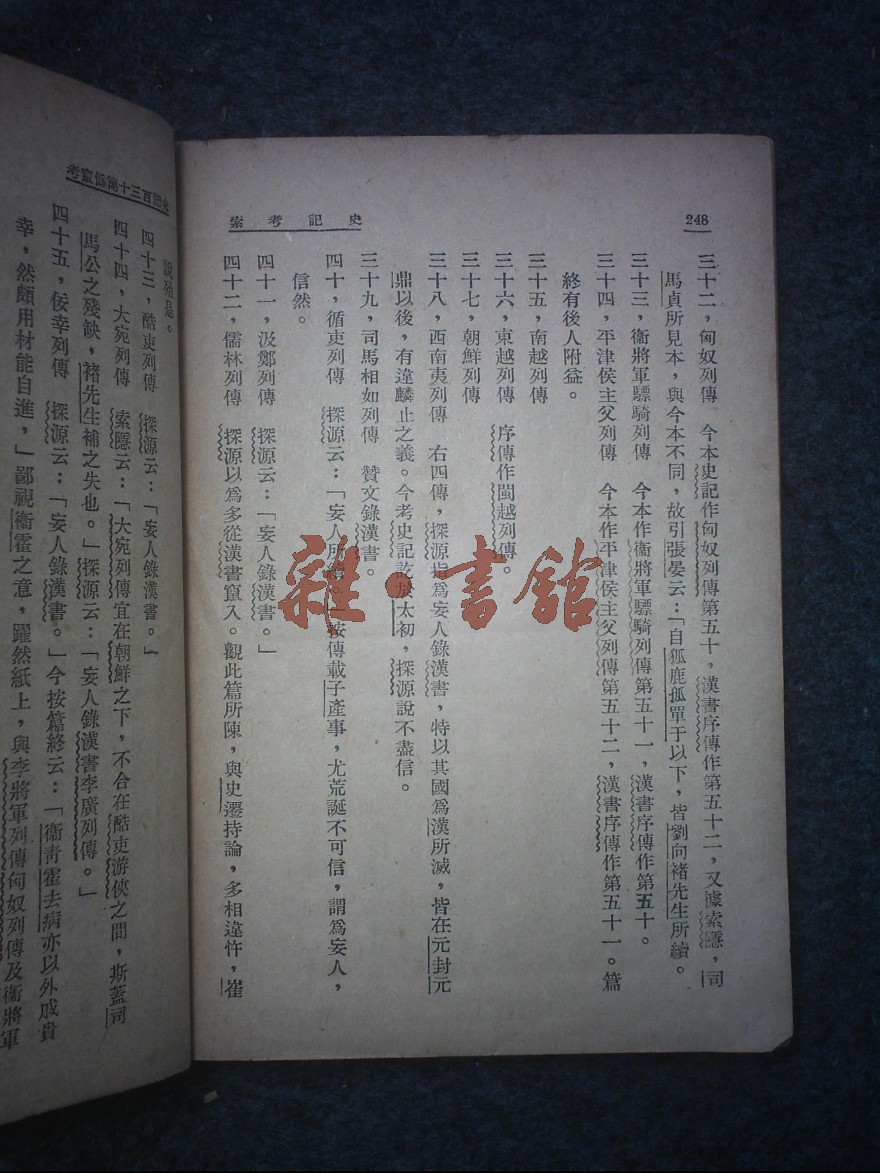 248
史記考索
三十二，匈奴列傳　今本史記作匈奴列傳第五十，漢書序傳作第五十二，又據索隱，司
馬貞所見本，與今本不同，故引張晏云：「自狐鹿孤單于以下，皆劉向褚先生所續。
三十三，衞將軍驃騎列傳　今本作衞將軍驃騎列傳第五十一，漢書序傳作第五十。
三十四，平津侯主父列傳　今本作平津侯主父列傳第五十二，漢書序傳作第五十一。篇
終有後人附益。
三十五，南越列傳
三十六，東越列傳　序傳作閩越列傳。
三十七，朝鮮列傳
三十八，西南夷列傳　右四傳，探源指爲妄人錄漢書，特以其國爲漢所滅，皆在元封元
鼎以後，有違麟止之義。今考史記訖於太初，探源說不盡信。
三十九，司馬相如列傳　贊文錄漢書。
四十，循吏列傳　探源云：「妄人所續。」按傳載子產事，尤荒誕不可信，謂爲妄人，
信然。
四十一，汲鄭列傳　探源云：「妄人錄漢書。」
四十二，儒林列傳　探源以爲多從漢書竄入。觀此篇所陳，與史遷持論，多相違忤，崔
史記百三十篇僞竄考
說殆是。
四十三，酷吏列傳　探源云：「妄人錄漢書。」
四十四，大宛列傳　索隱云：「大宛列傳宜在朝鮮之下，不合在酷吏游俠之間，斯蓋司
馬公之殘缺，褚先生補之失也。」探源云：「妄人錄漢書李廣列傳。」
四十五，佞幸列傳　探源云：「妄人錄漢書。」今按篇終云：「衞青霍去病亦以外戚貴
幸，然頗用材能自進，」鄙視衞霍之意，躍然紙上，與李將軍列傳匈奴列傳及衞將軍
雜·書館